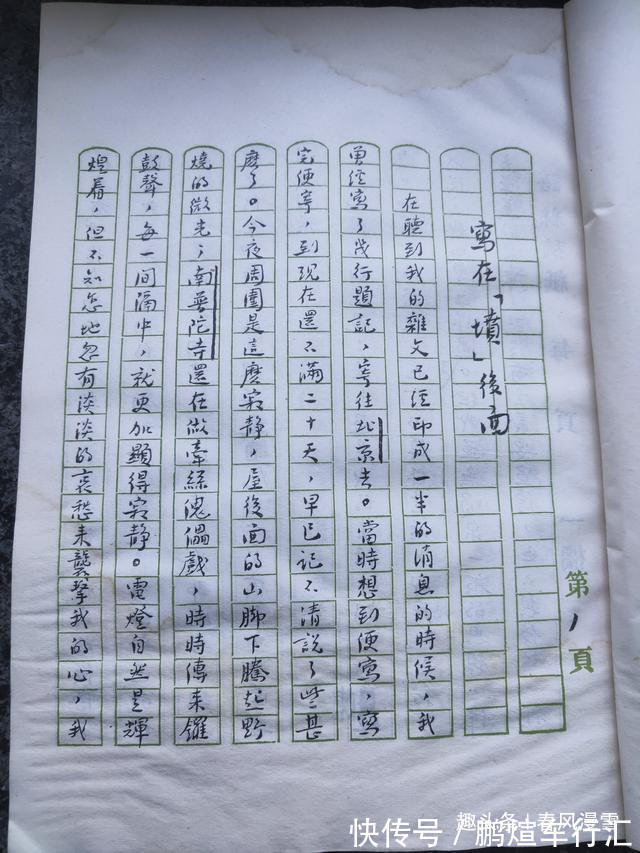 第1頁
寫在「墳」後面
在聽到我的雜文已經印成一半的消息的時候，我
曾經寫了幾行題記，寄往北京去。當時想到便寫，寫
完便寄，到現在還不滿二十天，早已記不清說了些甚
麽了。今夜周圍是這麽寂静，屋後面的山脚下騰起野
燒的微光；南普陀寺還在做牽絲傀儡戲，時時傳來鑼
鼓聲，每一間隔中，就更加顯得寂静。電燈自然是輝
煌着，但不知怎地忽有淡淡的哀愁来襲擊我的心，我
趣头条！春风漫雪
快传号／鹏煊车行汇